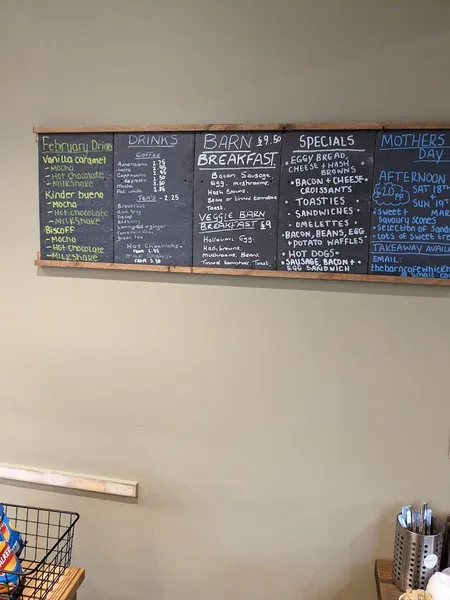 February Drinks
Vanilla caramel
- Mocha
- Hot chocolate
- Milkshake
Kinder bueno
- Mocha
- Hot chocolate
- Milkshake
Biscoff
- Mocha
- Hot chocolate
- Milkshake
DRINKS
Coffee
Americano
Latte
Cappuccino
Espresso
Mocha
Flat white
Teas - 2.25
Breakfast
Earl Grey
Decaf
Lemongrass + ginger
Green tea
Hot Chocolates
FROM
Milk Shakes
FROM
BARN £9.50
BREAKFAST
Bacon, Sausage,
Egg, mushrooms,
Hash Browns,
Beans or tinned tomatoes
Toast.
VEGGIE BARN
BREAKFAST £9
Halloumi, Egg,
Hash browns,
Mushrooms, Beans,
Tinned tomatoes, Toast.
SPECIALS
• EGGY BREAD,
CHEESE + HASH
BROWNS
• BACON + CHEESE
CROISSANTS
• TOASTIES
• SANDWICHES
• OMELETTES
• BACON, BEANS, EGG
+ POTATO WAFFLES
• HOT DOGS
• SAUSAGE, BACON +
EGG SANDWICH
MOTHERS
DAY
AFTERNOON
£20 PP
SAT 18TH
SUN 19T
MAR
• Sweet +
Savoury scones
• Selection of Sand
• Lots of sweet tre
TAKEAWAY AVAILA
EMAIL:
thebarncafewhickh
@gmail.co